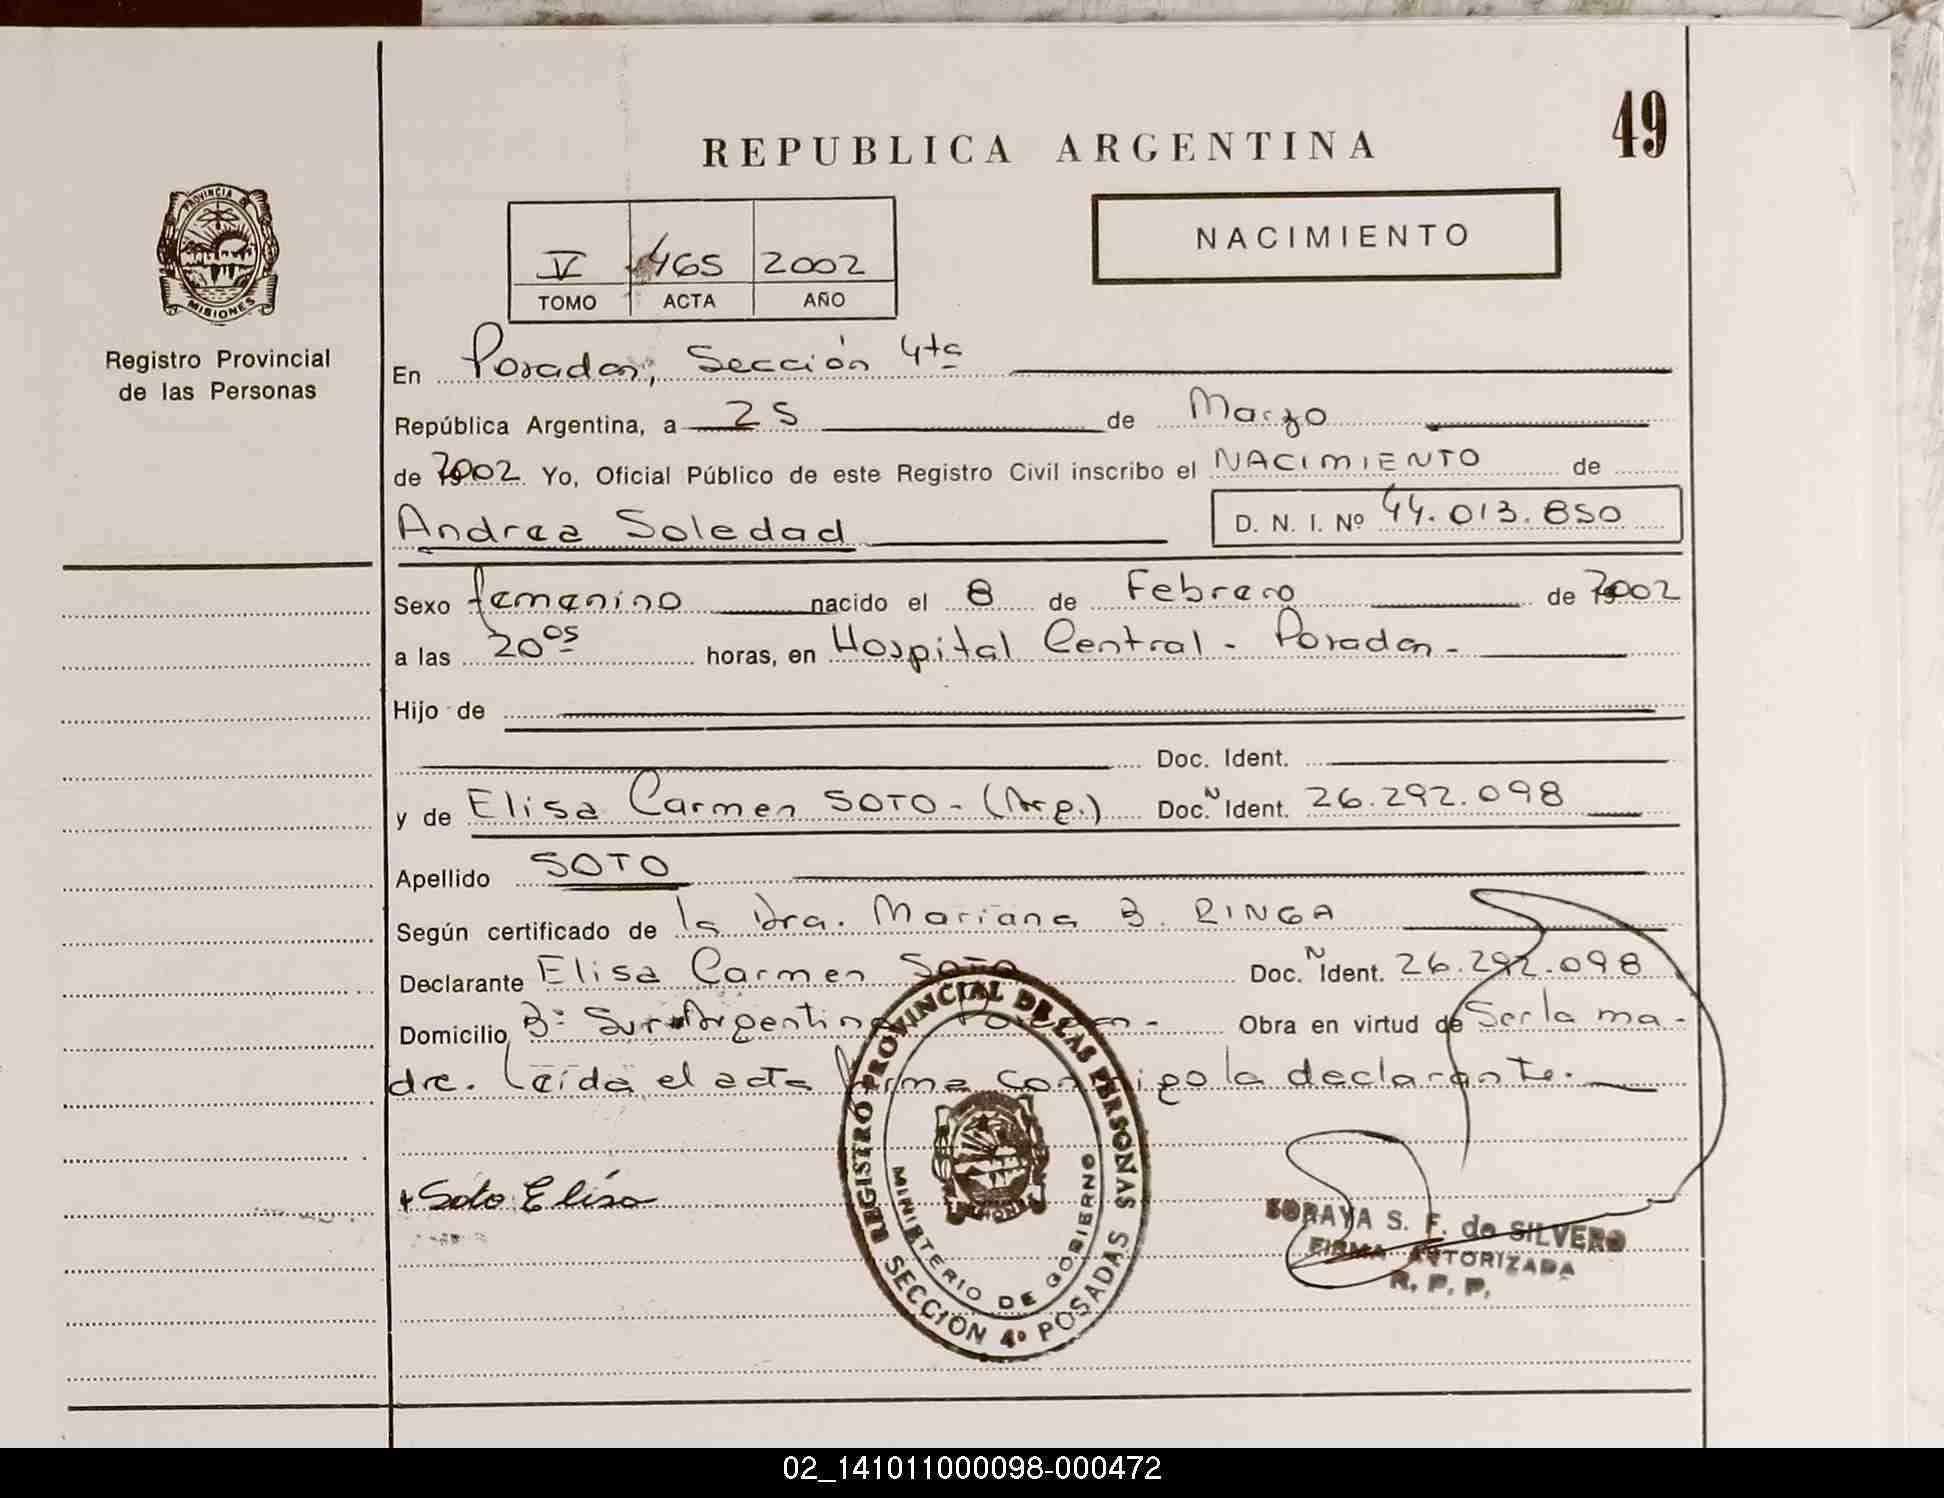 49
REPUBLICA ARGENTINA
PROVINCIA DE
MISIONES
Registro Provincial
de las Personas
V 465 2002
TOMO ACTA AÑO
NACIMIENTO
En Posadas, Sección 4ta
República Argentina, a 25 de Marzo
de 2002 Yo, Oficial Público de este Registro Civil inscribo el NACIMIENTO de
Andrea Soledad D. N. I. Nº 44.013.850
Sexo femenino nacido el 8 de Febrero de 2002
a las 20 05 horas, en Hospital Central - Posadas -
Hijo de
Doc. Ident.
y de Elisa Carmen SOTO - (Arg.) Doc. N Ident. 26.292.098
Apellido SOTO
Según certificado de la Dra. Mariana B. RINGA
Declarante Elisa Carmen SOTO Doc. N Ident. 26.292.098
Domicilio Bº Sur Argentino Posadas - Obra en virtud de Ser la ma-
dre. Leída el acta firma conmigo la declarante.
+ Soto Elisa
REGISTRO PROVINCIAL DE LAS PERSONAS
MINISTERIO DE GOBIERNO
SECCIÓN 4º POSADAS
SORAYA S. F. de SILVERO
FIRMA AUTORIZADA
R. P. P.
02_141011000098-000472